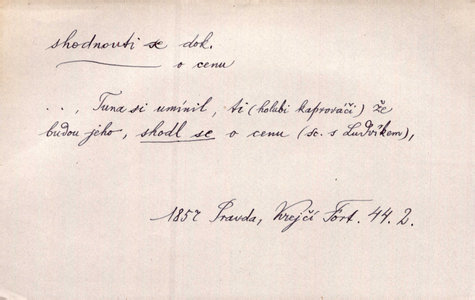 shodnouti se dok.
o cenu
..., Tuna si umínil, ti (holubi kaprováči) že
budou jeho, shodl se o cenu (sc. s Ludvíkem),
1857 Pravda, Krejčí Fort. 44. 2.